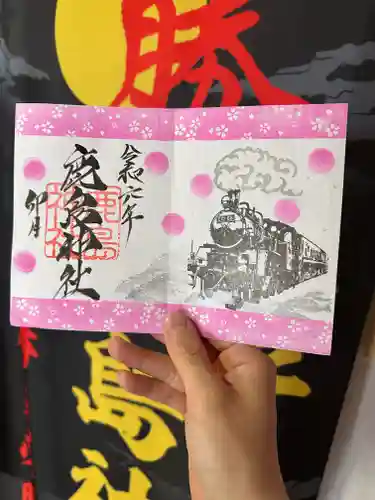 勝
令和六年
鹿島神社
卯月
鹿島
神社
島
社